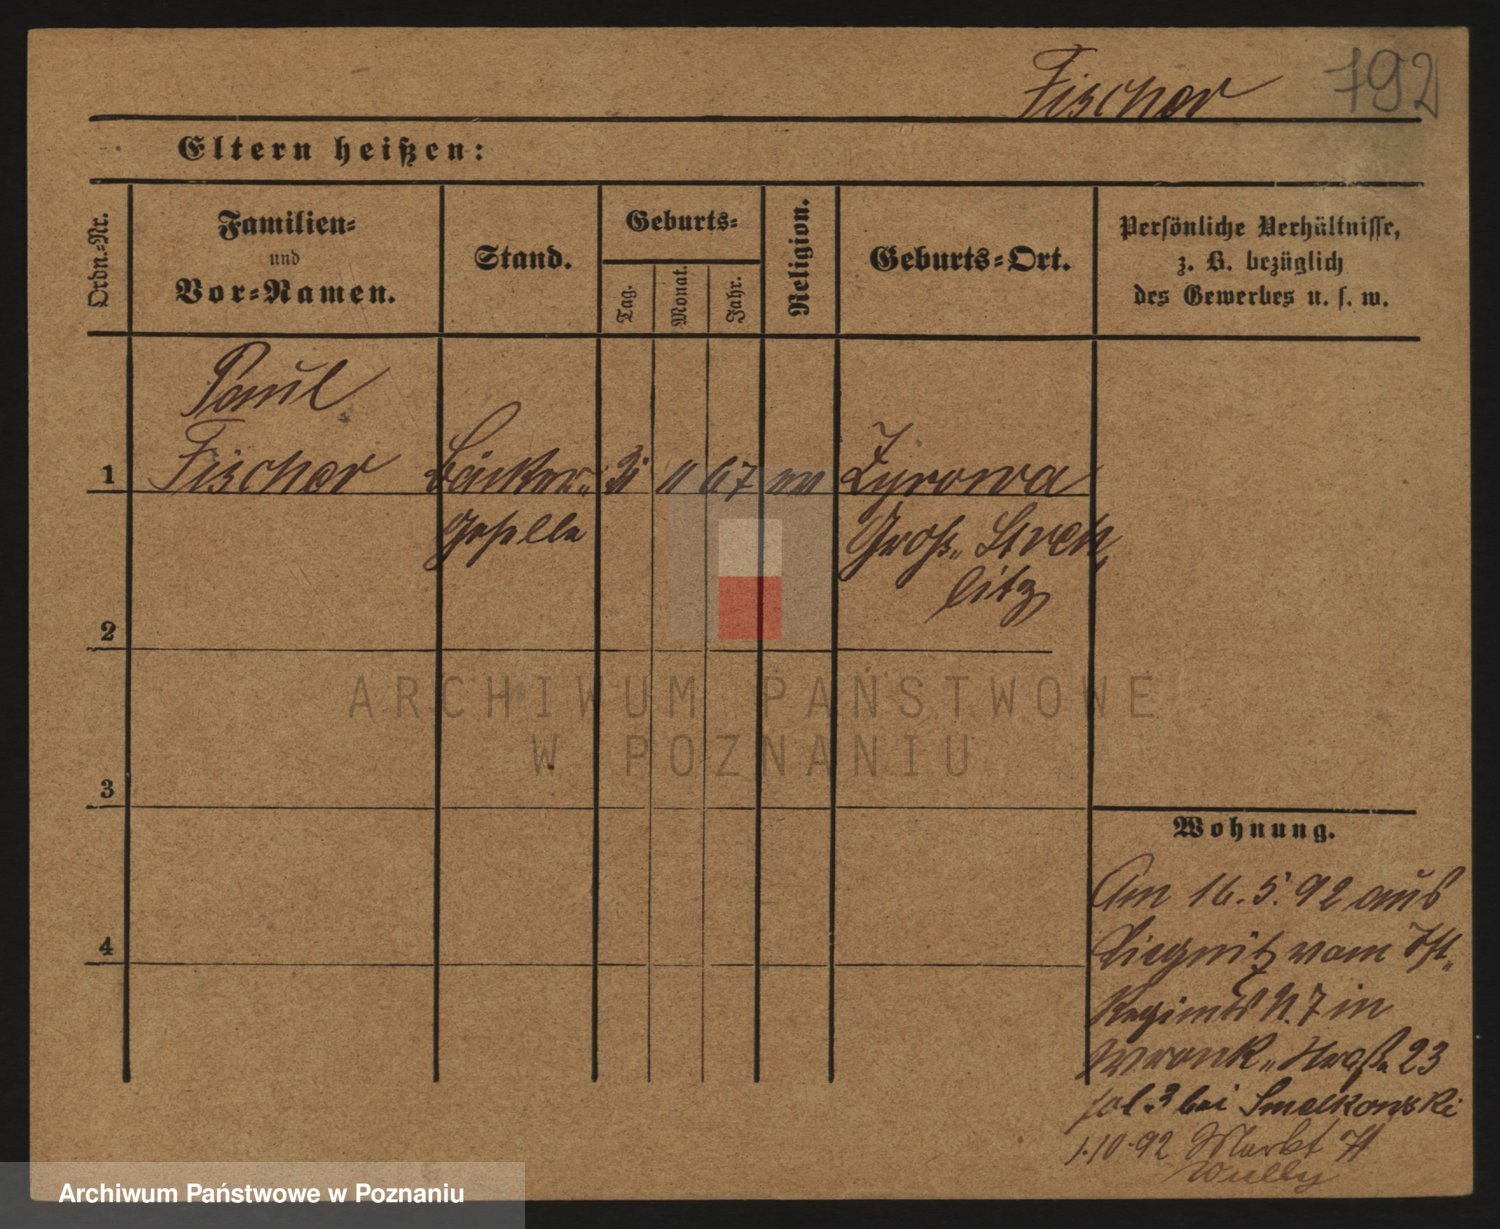 Fischer 792
Eltern heißen:
Ordn.-Nr.
Familien-
und
Vor-Namen.
Stand.
Geburts-
Tag.
Monat.
Jahr.
Religion.
Geburts-Ort.
Persönliche Verhältnisse,
z. B. bezüglich
des Gewerbes u. s. w.
Paul
1 Fischer Bäcker- 67 Zyrowa
Geselle Groß- Streh
litz
2
3
4
Wohnung.
Am 16.5.92 aus
Liegnitz vom
Regimt N. 7 in
Wronk. Straße 23
bei Smelkowski
1.10.92 Markt
ARCHIWUM PAŃSTWOWE
W POZNANIU
Archiwum Państwowe w Poznaniu